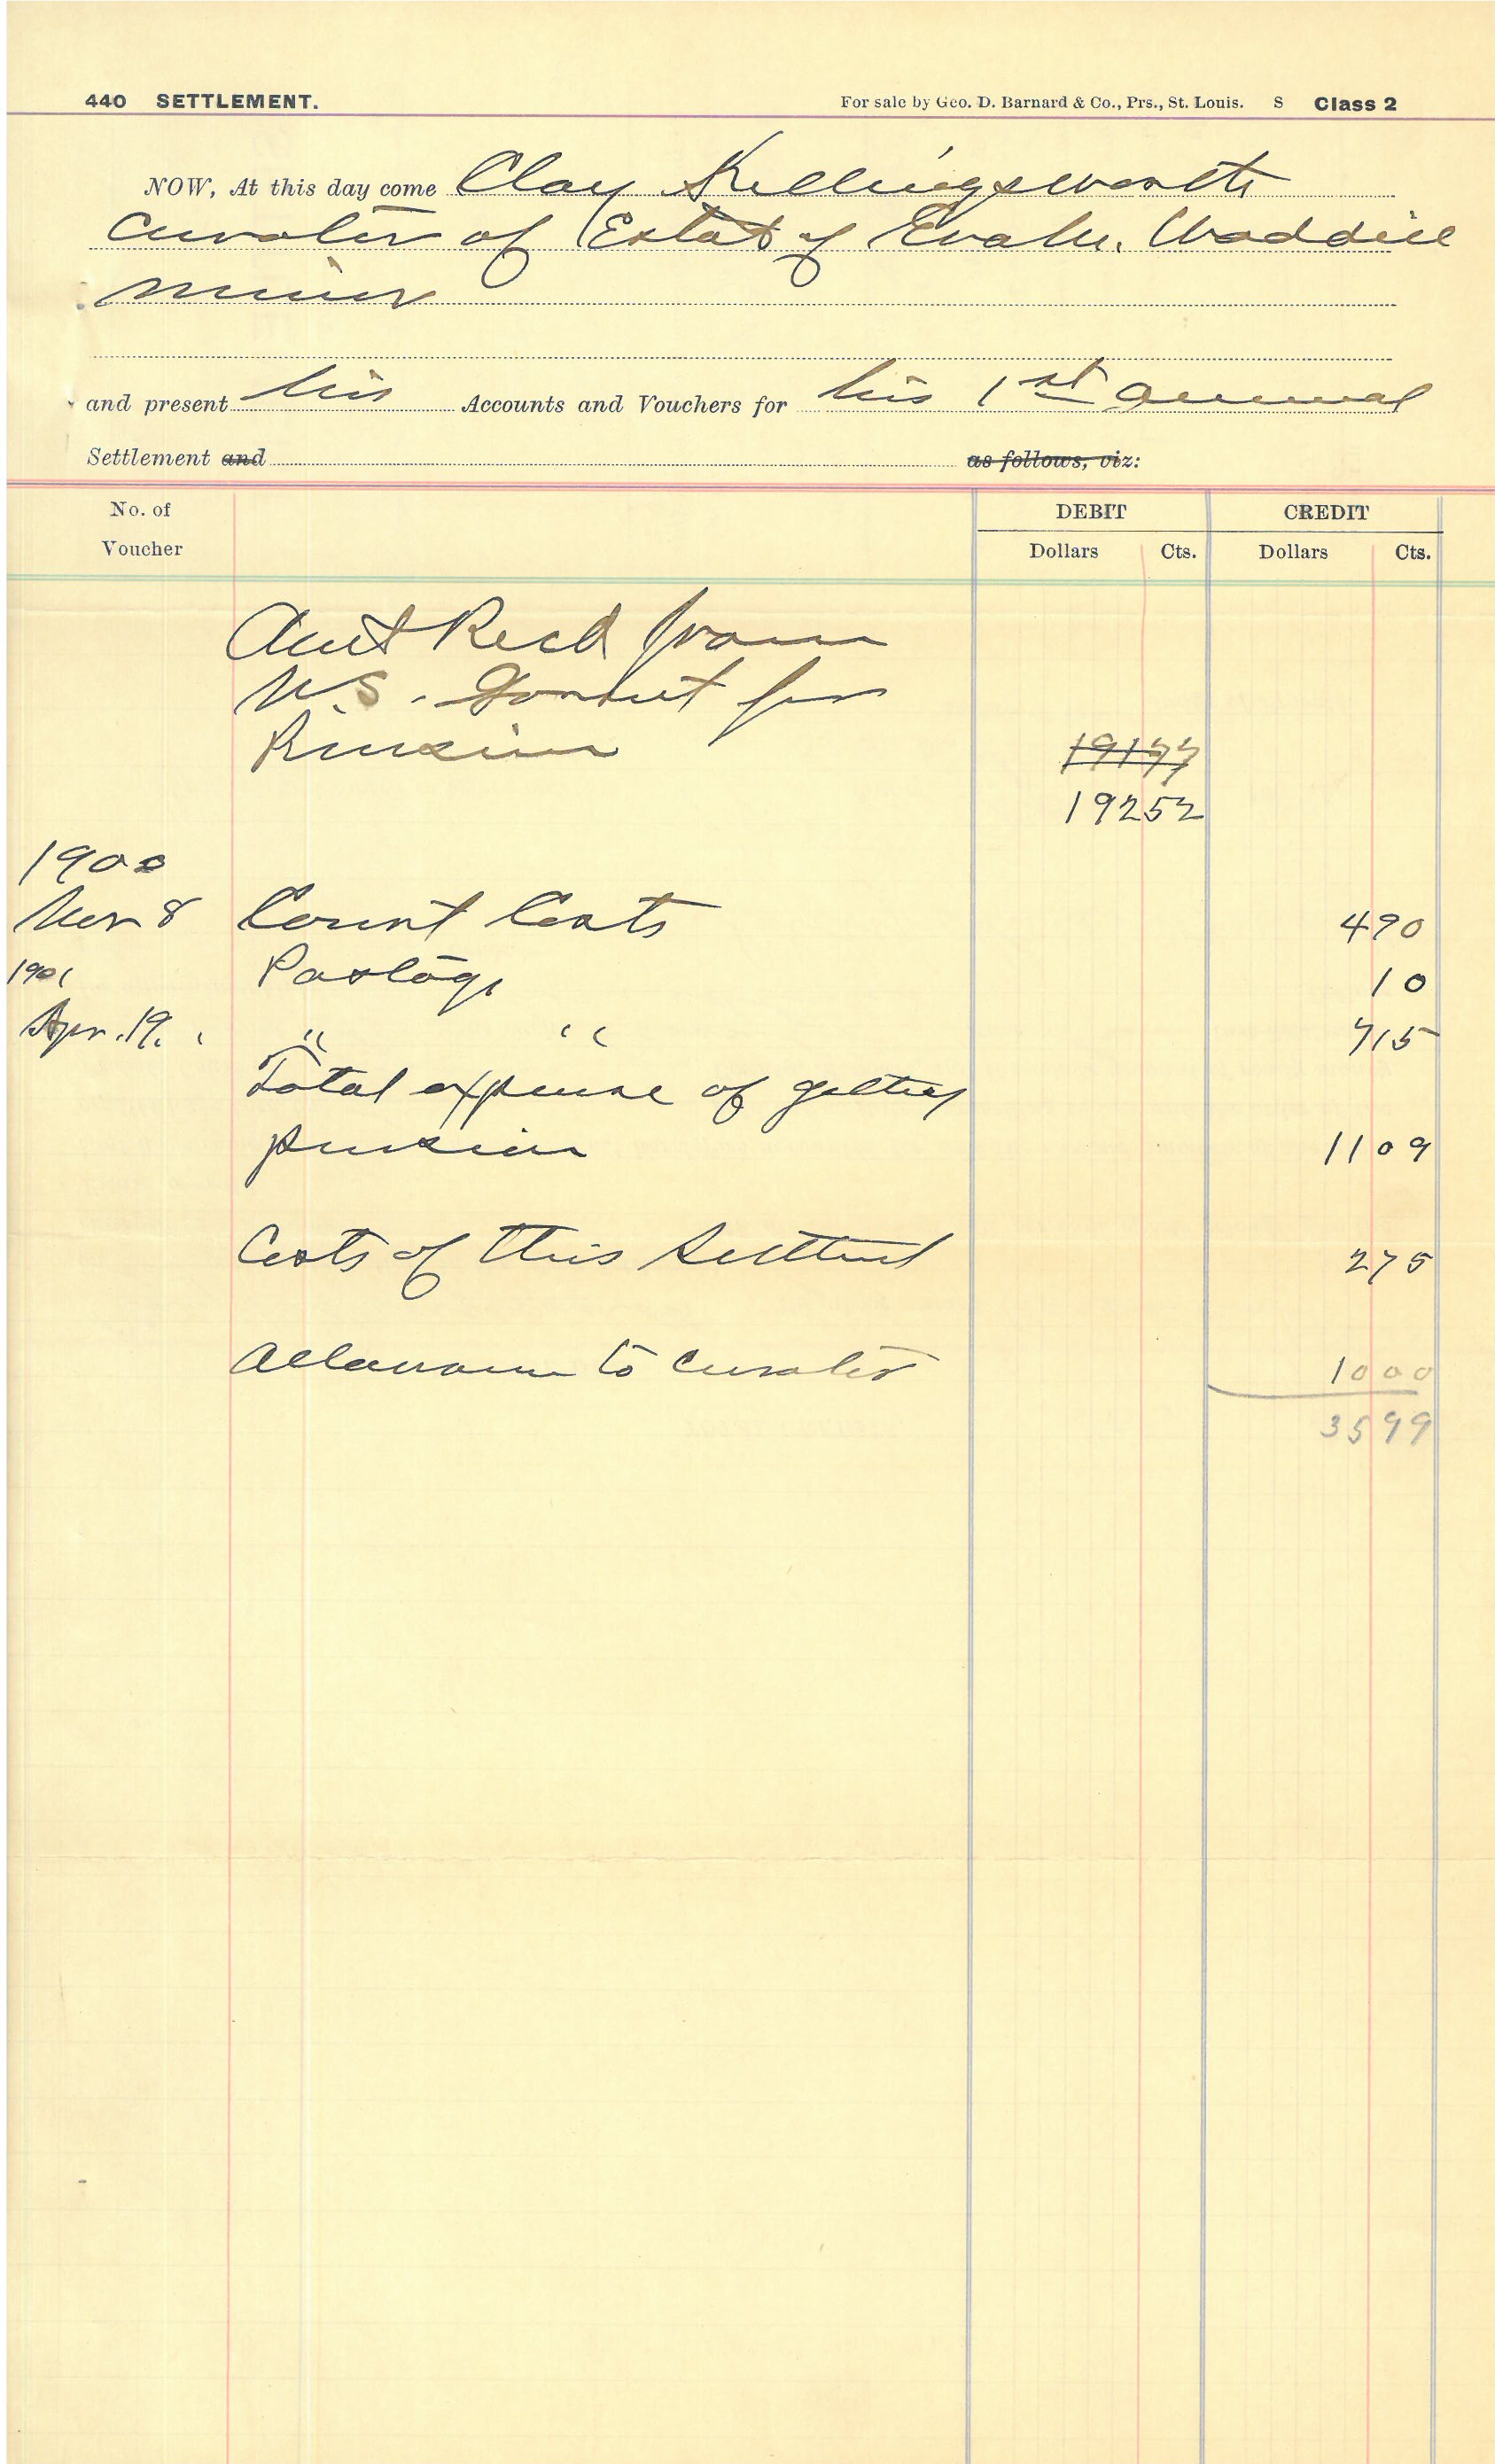 440 SETTLEMENT. For sale by Geo. D. Barnard & Co., Prs., St. Louis. S Class 2
NOW, At this day come Clay Killingsworth
Curator of Estate of Waddill
minor
and present his Accounts and Vouchers for his 1st annual
Settlement and as follows, viz:
No. of Voucher DEBIT CREDIT
Dollars Cts. Dollars Cts.
Amt Recd from
U.S. for
Pension 19177
19252
1900
Nov 8 Court Costs 490
1901 Postage 10
Apr. 19. " " 715
Total expense of getting
pension 1109
Costs of this Settlmt 275
Allowance to Curator 1000
3599